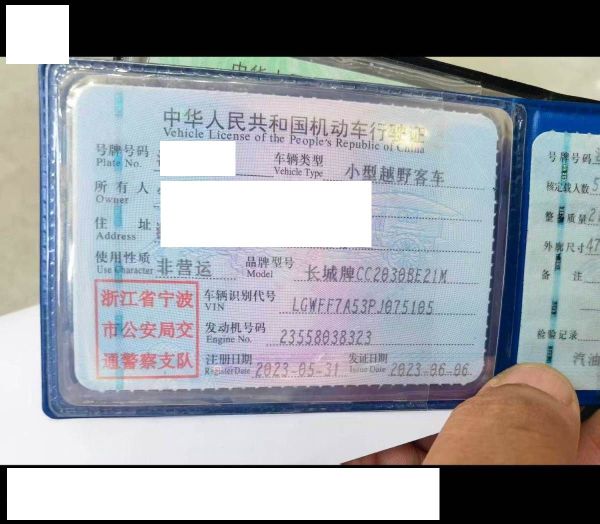 中华人民共和国机动车行驶证
Vehicle License of the People's Republic of China
号牌号码
Plate No.
车辆类型 小型越野客车
Vehicle Type
所有人
Owner
住 址
Address
使用性质 非营运
Use Character
品牌型号 长城牌CC2030BE21M
Model
浙江省宁波
市公安局交
通警察支队
车辆识别代号 LGWFF7A53PJ075105
VIN
发动机号码 23558038323
Engine No.
注册日期 2023-05-31
Register Date
发证日期 2023-06-06
Issue Date
号牌号码
核定载人数 5
整备质量 2
外廓尺寸 47
备 注
检验记录
汽油